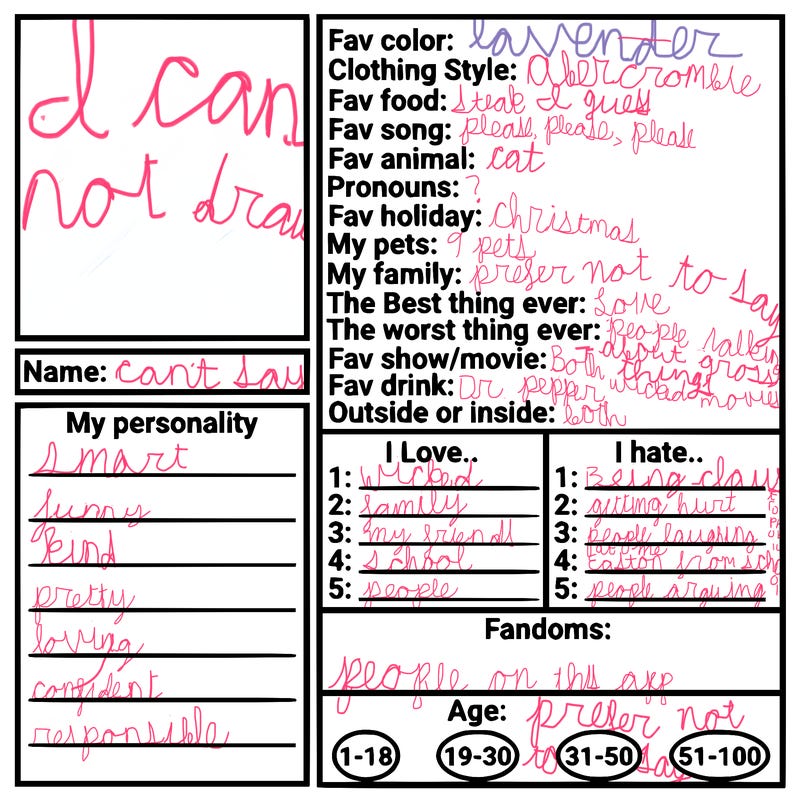 I can
not draw
Name: can't say
My personality
smart
funny
kind
pretty
loving
confident
responsible
Fav color: lavender
Clothing Style: Abercrombie
Fav food: steak I guess
Fav song: please, please, please
Fav animal: cat
Pronouns: ?
Fav holiday: Christmas
My pets: 9 pets
My family: prefer not to say
The Best thing ever: Love
The worst thing ever: People talking
about gross
things
Fav show/movie: Both wicked movies
Fav drink: Dr pepper
Outside or inside: both
I Love..
1: wicked
2: family
3: my friends
4: school
5: people
I hate..
1: Being
2: getting hurt
3: people laughing
at me
4: Easton from
5: people arguing
Fandoms:
people on this app
Age: prefer not
to say
1-18 19-30 31-50 51-100